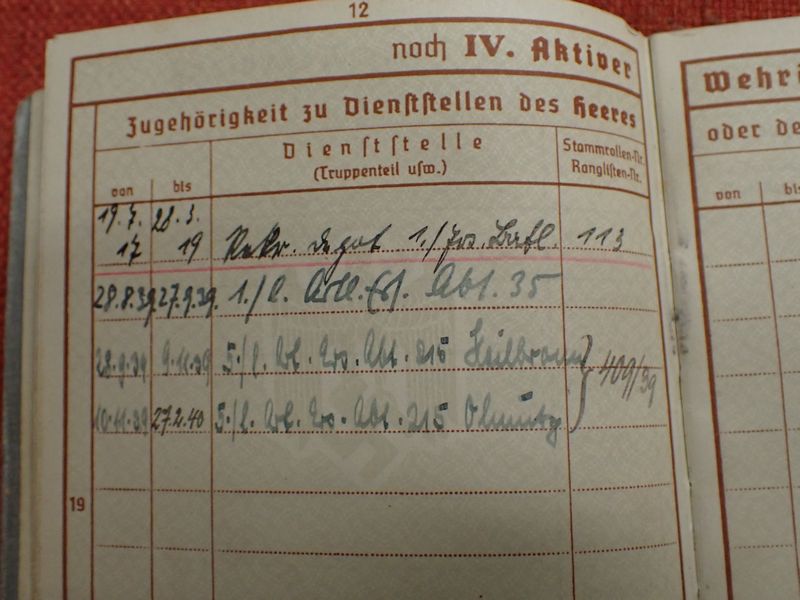 12
noch IV. Aktiver
Wehr
Zugehörigkeit zu Dienststellen des Heeres
oder de
von
bis
Dienststelle
(Truppenteil usw.)
Stammrollen-Nr.
Ranglisten-Nr.
von
bis
19.7. 28.3.
17 19 Rekr. depot 1./Ers. Batl. 113
28.8.39 27.9.39. 1./l. Artl. Ers. Abt. 35
28.9.39 9.11.39 5./l. Art. Ers. Abt. 215 Heilbronn
409/39
10.11.39 27.2.40 5./l. Art. Ers. Abt. 215 Olmütz
19